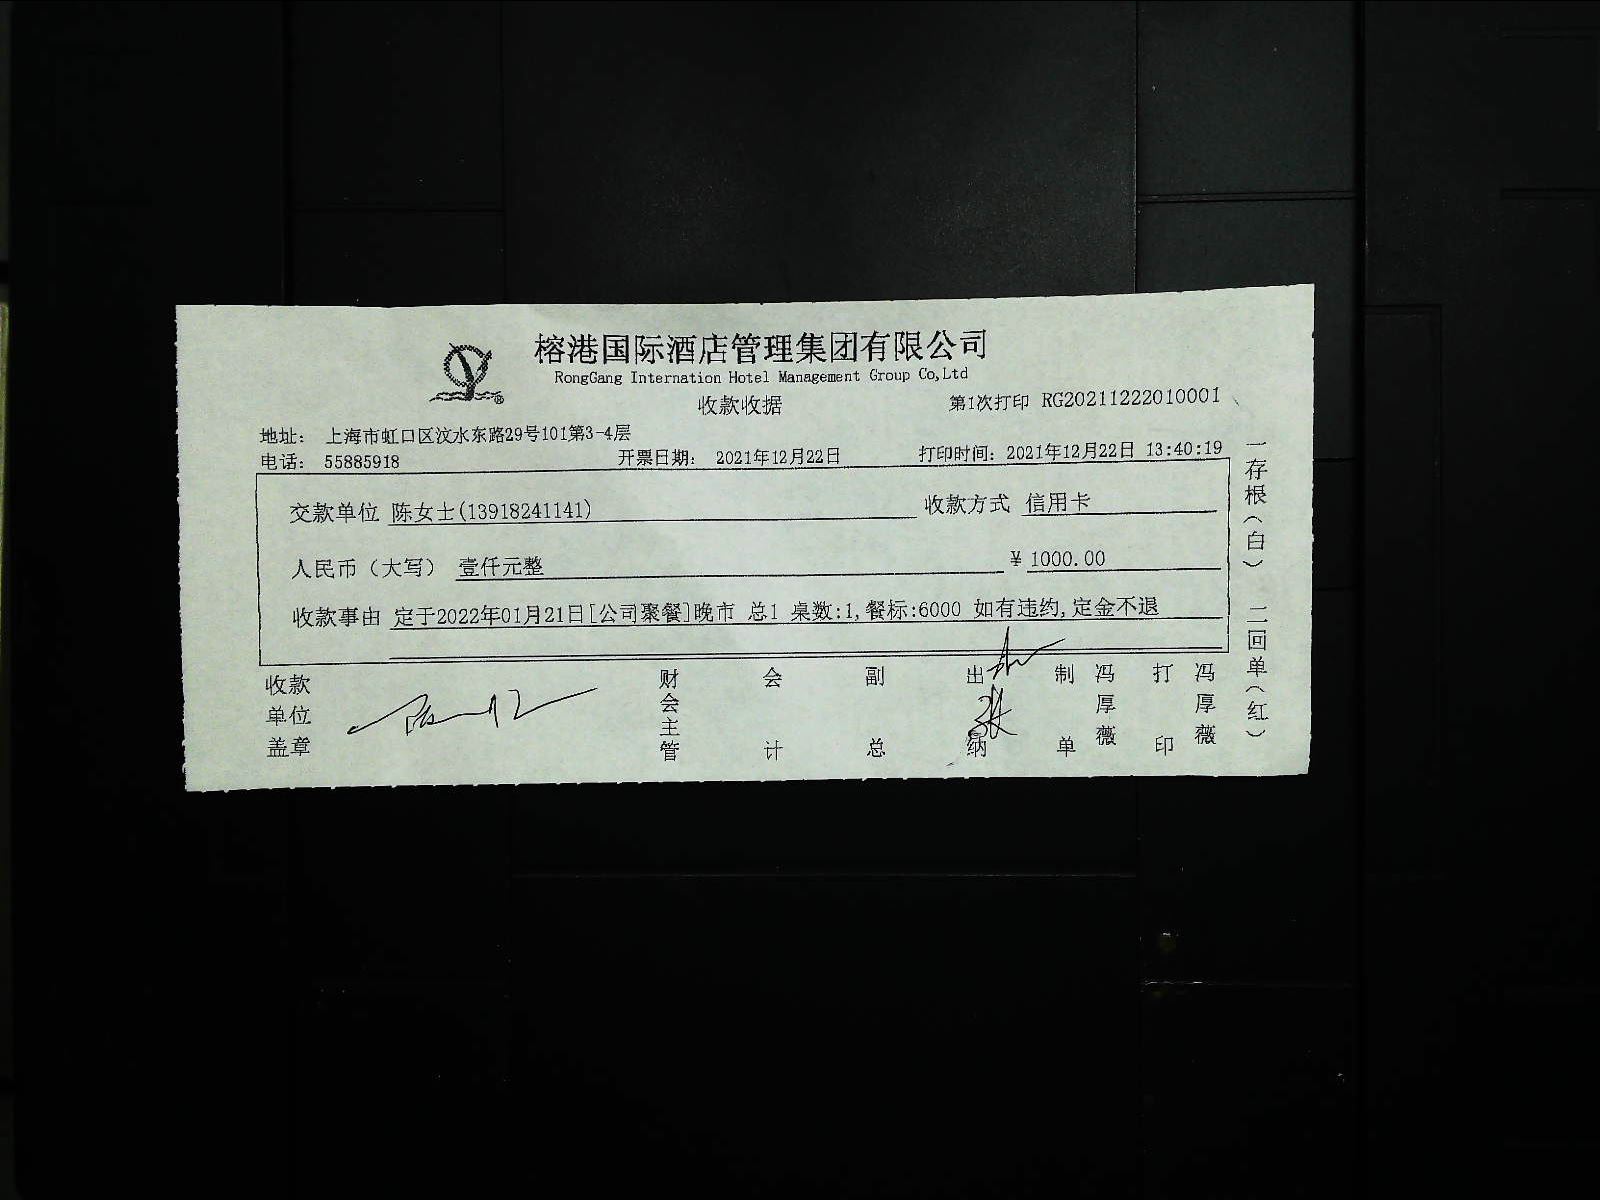 榕港国际酒店管理集团有限公司
RongGang Internation Hotel Management Group Co,Ltd
收款收据
第1次打印 RG20211222010001
地址： 上海市虹口区汶水东路29号101第3-4层
电话： 55885918 开票日期： 2021年12月22日 打印时间： 2021年12月22日 13:40:19
交款单位 陈女士(13918241141) 收款方式 信用卡
人民币（大写） 壹仟元整 ￥1000.00
收款事由 定于2022年01月21日[公司聚餐]晚市 总1 桌数:1,餐标:6000 如有违约,定金不退
收款单位盖章
财会主管
会计
副总
出纳
制单 冯厚薇
打印 冯厚薇
一存根（白） 二回单（红）